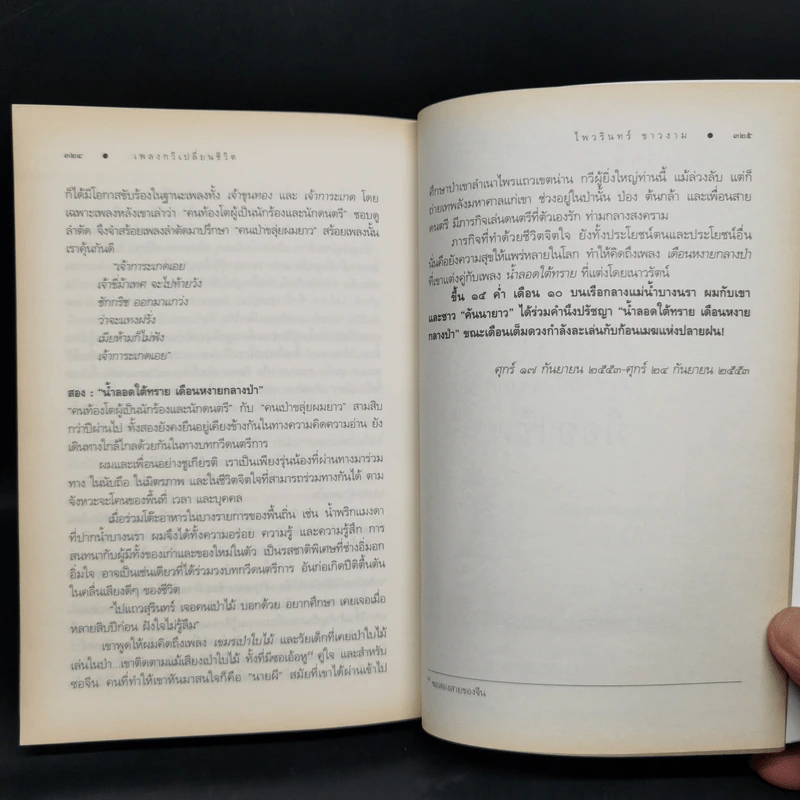 ๓๒๔ ● เพลงกวีเปลี่ยนชีวิต
ก็ได้มีโอกาสขับร้องในฐานะเพลงทั้ง เจ้าขุนทอง และ เจ้าการะเกด โดย
เฉพาะเพลงหลังเขาเล่าว่า "คนท้องโตผู้เป็นนักร้องและนักดนตรี" ชอบดู
ลำตัด จึงจำสร้อยเพลงลำตัดมาปรึกษา "คนเป่าขลุ่ยผมยาว" สร้อยเพลงนั้น
เราคุ้นกันดี
"เจ้าการะเกดเอย
เจ้าขี่ม้าเทศ จะไปท้ายวัง
ชักกริช ออกมาแกว่ง
ว่าจะแทงฝรั่ง
เมียห้ามก็ไม่ฟัง
เจ้าการะเกดเอย"
สอง : "น้ำลอดใต้ทราย เดือนหงายกลางป่า"
"คนท้องโตผู้เป็นนักร้องและนักดนตรี" กับ "คนเป่าขลุ่ยผมยาว" สามสิบ
กว่าปีผ่านไป ทั้งสองยังคงยืนอยู่เคียงข้างกันในทางความคิดความอ่าน ยัง
เดินทางใกล้ไกลด้วยกันในทางบทกวีดนตรีการ
ผมและเพื่อนอย่างชูเกียรติ เราเป็นเพียงรุ่นน้องที่ผ่านทางมาร่วม
ทาง ในนับถือ ในมิตรภาพ และในชีวิตจิตใจที่สามารถร่วมทางกันได้ ตาม
จังหวะจะโคนของพื้นที่ เวลา และบุคคล
เมื่อร่วมโต๊ะอาหารในบางรายการของพื้นถิ่น เช่น น้ำพริกแมงดา
ที่ปากน้ำบางนรา ผมจึงได้ทั้งความอร่อย ความรู้ และความรู้สึก การ
สนทนากับผู้มีทั้งของเก่าและของใหม่ในตัว เป็นรสชาติพิเศษที่ช่างอิ่มอก
อิ่มใจ อาจเป็นเช่นเดียวที่ได้ร่วมวงบทกวีดนตรีการ อันก่อเกิดปีติตื้นตัน
ในคลื่นเสียงดีๆ ของชีวิต
"ไปแถวสุรินทร์ เจอคนเป่าไม้ บอกด้วย อยากศึกษา เคยเจอเมื่อ
หลายสิบปีก่อน ฝังใจไม่รู้ลืม"
เขาพูดให้ผมคิดถึงเพลง เขมรเป่าใบไม้ และวัยเด็กที่เคยเป่าใบไม้
เล่นในป่า...เขาติดตามแม้เสียงเป่าใบไม้ ทั้งที่มีซอเอ้อหู คู่ใจ และสำหรับ
ซอจีน คนที่ทำให้เขาหันมาสนใจก็คือ "นายผี" สมัยที่เขาได้ผ่านเข้าไป
ไพวรินทร์ ขาวงาม ● ๓๒๕
ศึกษาป่าเขาลำเนาไพรแถวเขตน่าน กวีผู้ยิ่งใหญ่ท่านนี้ แม้ล่วงลับ แต่ก็
ถ่ายเทพลังมหาศาลแก่เขา ช่วงอยู่ในป่านั้น ป่อง ต้นกล้า และเพื่อนสาย
ดนตรี มีภารกิจเล่นดนตรีที่ตัวเองรัก ท่ามกลางสงคราม
ภารกิจที่ทำด้วยชีวิตจิตใจ ยังทั้งประโยชน์ตนและประโยชน์อื่น
นั่นคือยังความสุขให้แพร่หลายในโลก ทำให้คิดถึงเพลง เดือนหงายกลางป่า
ที่เขาแต่งคู่กับเพลง น้ำลอดใต้ทราย ที่แต่งโดยเนาวรัตน์
ขึ้น ๑๔ ค่ำ เดือน ๑๐ บนเรือกลางแม่น้ำบางนรา ผมกับเขา
และชาว "คันนายาว" ได้ร่วมคำนึงปรัชญา "น้ำลอดใต้ทราย เดือนหงาย
กลางป่า" ขณะเดือนเต็มดวงกำลังละเล่นกับก้อนเมฆแห่งปลายฝน!
ศุกร์ ๑๗ กันยายน ๒๕๕๓-ศุกร์ ๒๔ กันยายน ๒๕๕๓
ซอสองสายของจีน